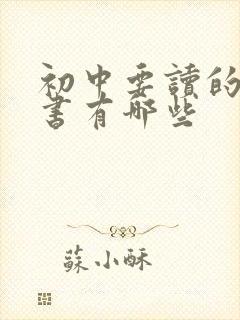 初中要讀的
書有哪些
蘇小酥